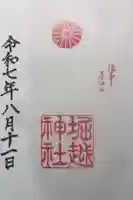 令和七年八月十一日
堀越神社